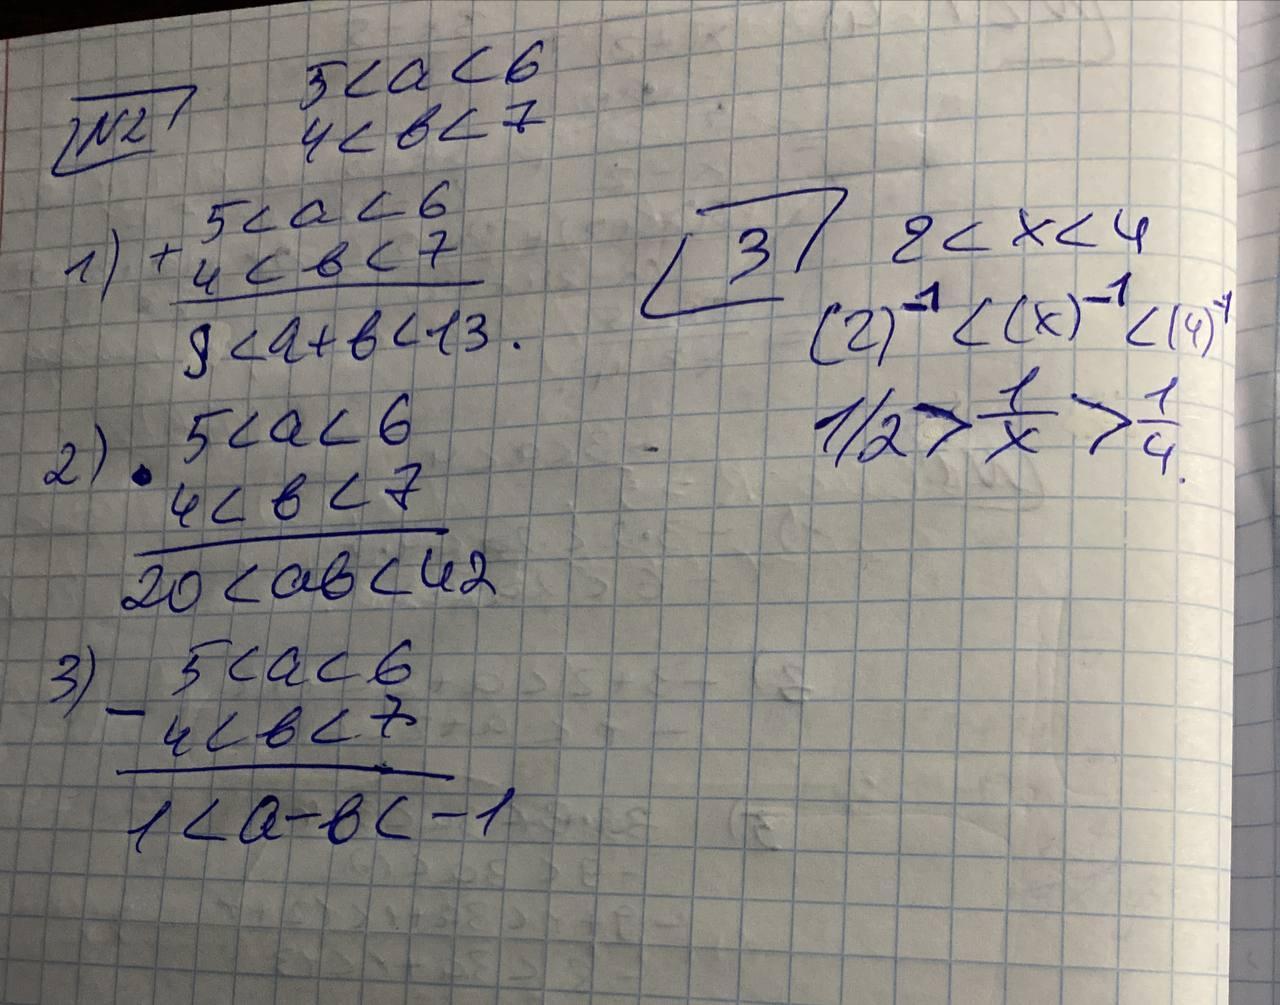 N2
5<a<6
4<в<7
1) + 5<a<6
4<в<7
9<a+в<13.
2) • 5<a<6
4<в<7
20<aв<42
3) - 5<a<6
4<в<7
1<a-в<-1
3
2<x<4
(2)⁻¹<(x)⁻¹<(4)⁻¹
1/2>1/x>1/4.